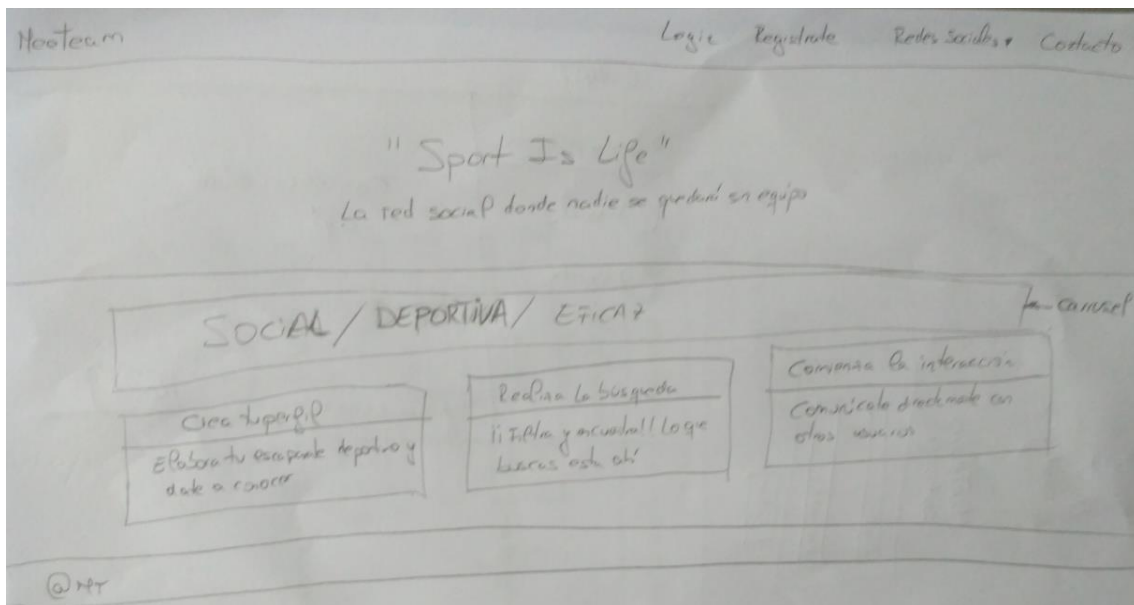 Neeteam Login Registrate Redes Sociales Contacto
"Sport Is Life"
La red social donde nadie se quedará sin equipo
SOCIAL / DEPORTIVA / EFICAZ
carrusel
Crea tu perfil
Elabora tu escaparate deportivo y
date a conocer
Realiza la búsqueda
¡¡Filtra y encuentra!! Lo que
buscas está ahí
Comienza la interacción
Comunícate directamente con
otros usuarios